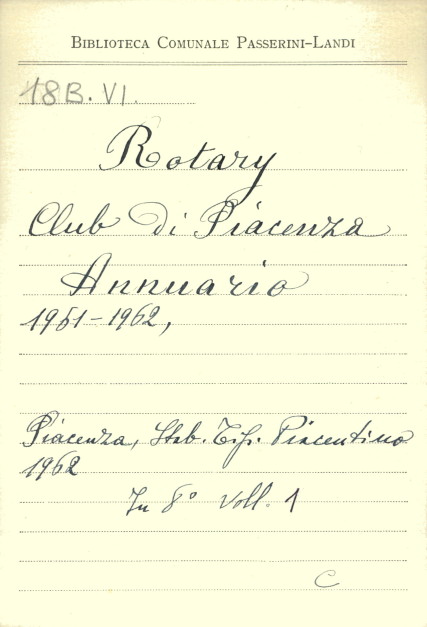 BIBLIOTECA COMUNALE PASSERINI-LANDI
18B. VI.
Rotary
Club di Piacenza
Annuario
1961-1962,
Piacenza, Stab. Tip. Piacentino
1962
In 8° Voll. 1
C